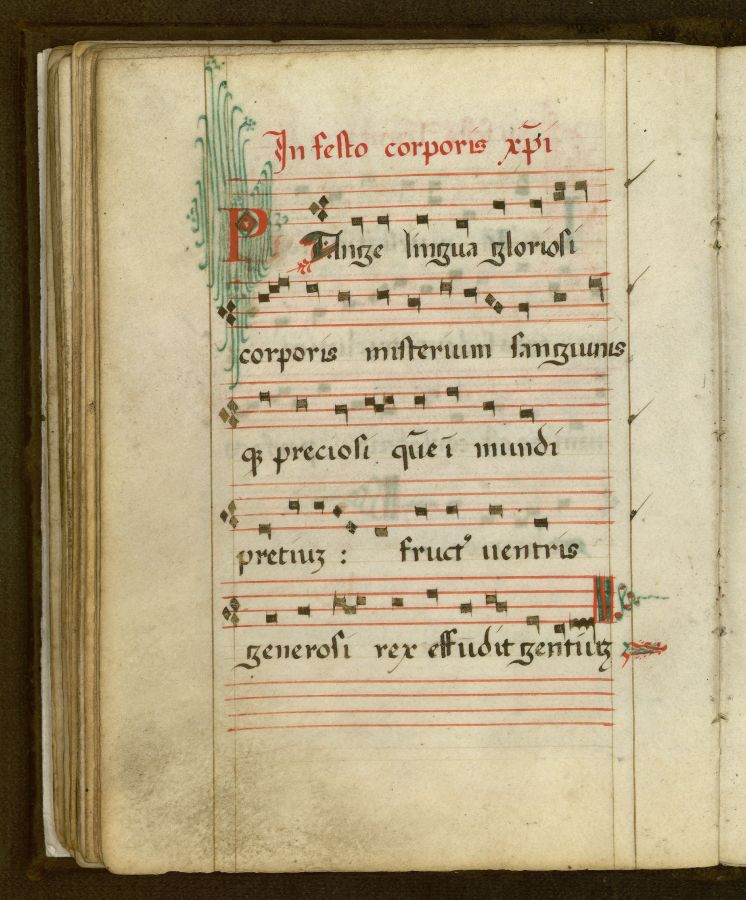 In festo corporis xp̄i
PAnge lingua gloriosi
corporis misterium sanguinis
qꝫ preciosi quē ī mundi
pretiuꝫ : fruct᷒ uentris
generosi rex effudit gentiuꝫ